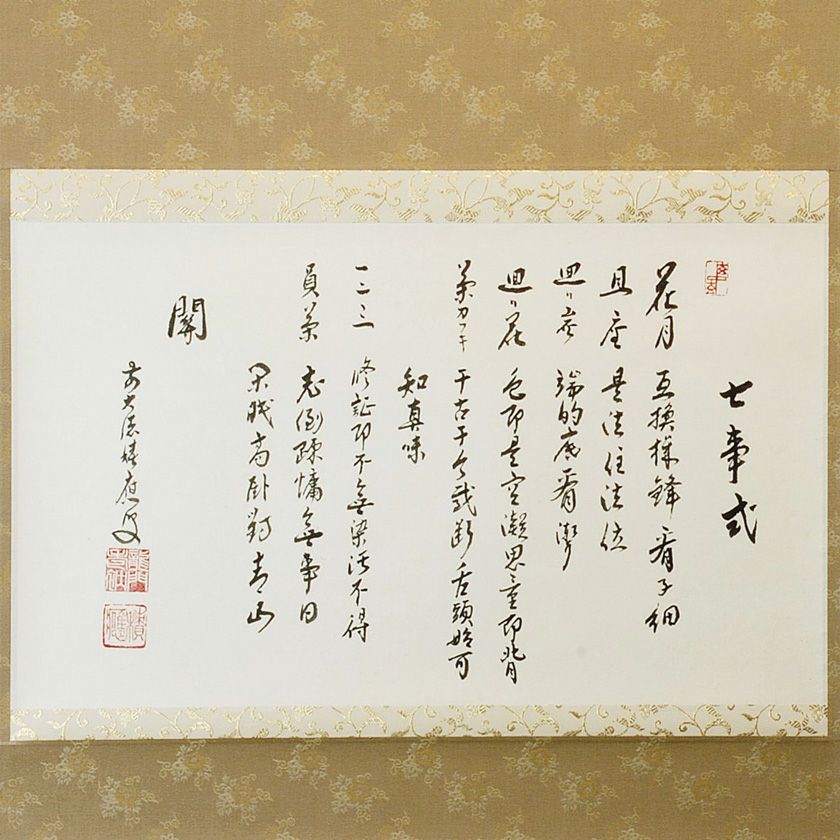 七事式
花月 互換機鋒看子細
且座 是法住法位
囘リ炭 端的底看聻
囘リ花 色即是空凝思量即背
茶カフキ 千古千今截断舌頭始可
知真味
一二三 修証即不無染汚不得
員茶 老倒疎慵無事日
閑眠高臥對青山
關
前大徳積應叟